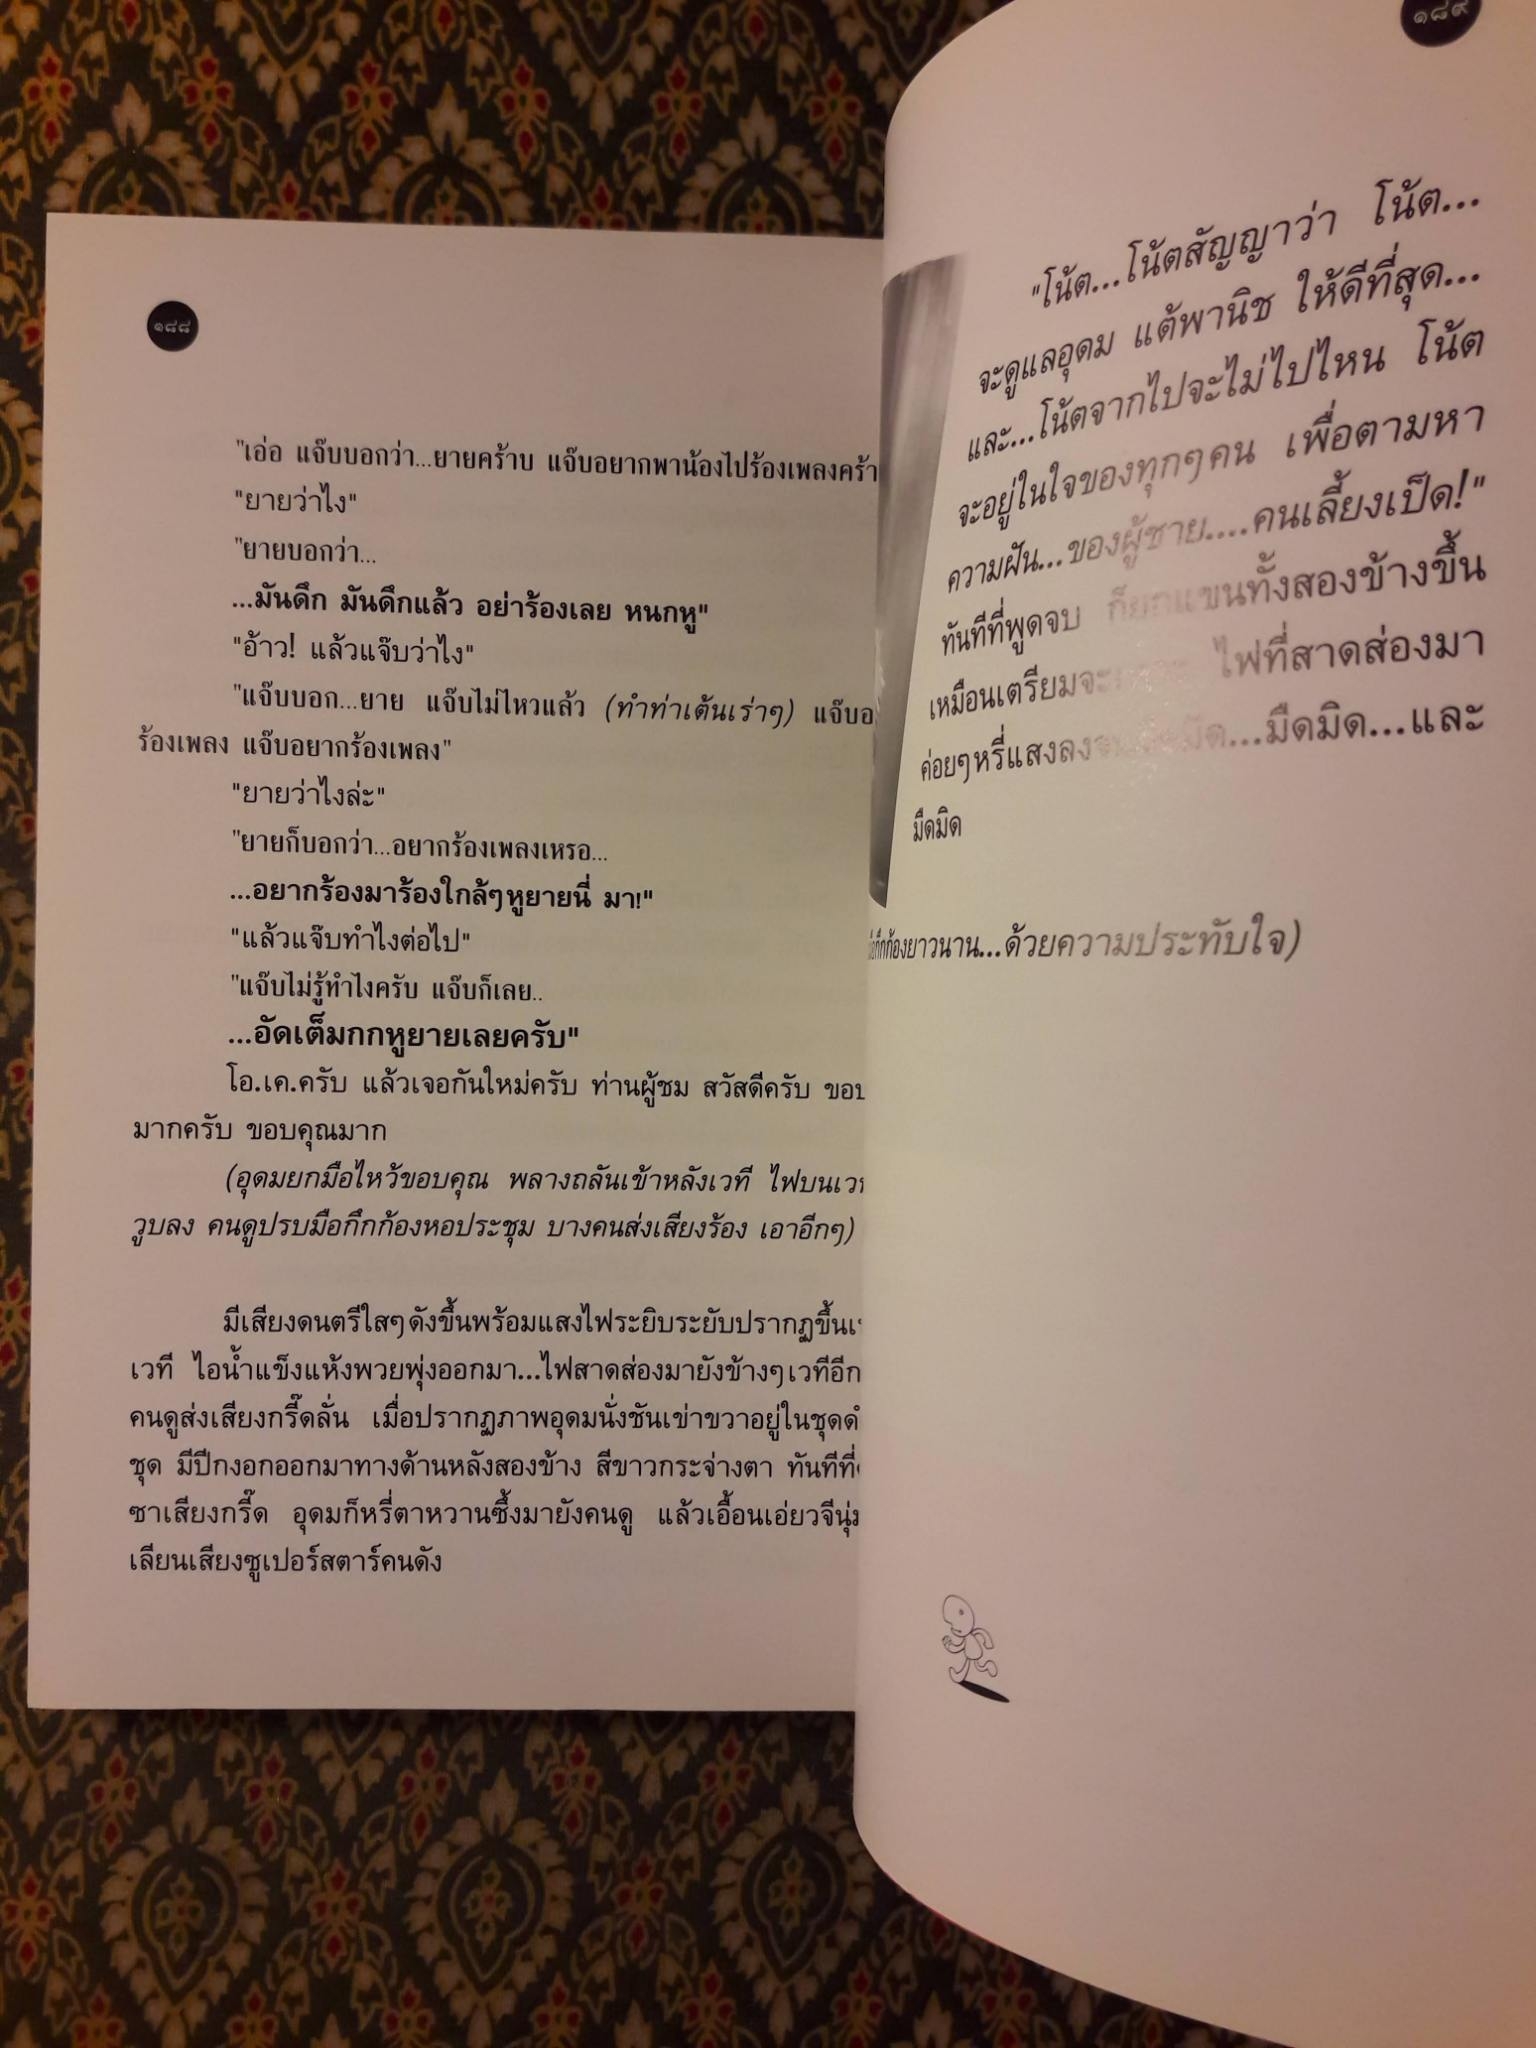 ๑๘๘
"เอ่อ แจ๊บบอกว่า...ยายคร้าบ แจ๊บอยากพาน้องไปร้องเพลงคร้า
"ยายว่าไง"
"ยายบอกว่า...
...มันดึก มันดึกแล้ว อย่าร้องเลย หนกหู"
"อ้าว! แล้วแจ๊บว่าไง"
"แจ๊บบอก...ยาย แจ๊บไม่ไหวแล้ว (ทำท่าเต้นเร่าๆ) แจ๊บอ
ร้องเพลง แจ๊บอยากร้องเพลง"
"ยายว่าไงล่ะ"
"ยายก็บอกว่า...อยากร้องเพลงเหรอ...
...อยากร้องมาร้องใกล้ๆหูยายนี่ มา!"
"แล้วแจ๊บทำไงต่อไป"
"แจ๊บไม่รู้ทำไงครับ แจ๊บก็เลย..
...อัดเต็มกกหูยายเลยครับ"
โอ.เค.ครับ แล้วเจอกันใหม่ครับ ท่านผู้ชม สวัสดีครับ ขอบ
มากครับ ขอบคุณมาก
(อุดมยกมือไหว้ขอบคุณ พลางถลันเข้าหลังเวที ไฟบนเวท
วูบลง คนดูปรบมือกึกก้องหอประชุม บางคนส่งเสียงร้อง เอาอีกๆ)
มีเสียงดนตรีใสๆดังขึ้นพร้อมแสงไฟระยิบระยับปรากฏขึ้น
เวที ไอน้ำแข็งแห้งพวยพุ่งออกมา...ไฟสาดส่องมายังข้างๆเวทีอีก
คนดูส่งเสียงกรี๊ดลั่น เมื่อปรากฏภาพอุดมนั่งชันเข่าขวาอยู่ในชุดดำ
ชุด มีปีกงอกออกมาทางด้านหลังสองข้าง สีขาวกระจ่างตา ทันทีที่
ซาเสียงกรี๊ด อุดมก็หรี่ตาหวานซึ้งมายังคนดู แล้วเอื้อนเอ่ยวจีนุ่ม
เลียนเสียงซูเปอร์สตาร์คนดัง
๑๘๙
"โน้ต...โน้ตสัญญาว่า โน้ต...
จะดูแลอุดม แต้พานิช ให้ดีที่สุด...
และ...โน้ตจากไปจะไม่ไปไหน โน้ต
จะอยู่ในใจของทุกๆคน เพื่อตามหา
ความฝัน...ของผู้ชาย....คนเลี้ยงเป็ด!"
ทันทีที่พูดจบ ก็ยกแขนทั้งสองข้างขึ้น
เหมือนเตรียมจะ ไฟที่สาดส่องมา
ค่อยๆหรี่แสงลง ...มืดมิด...และ
มืดมิด
กึกก้องยาวนาน...ด้วยความประทับใจ)